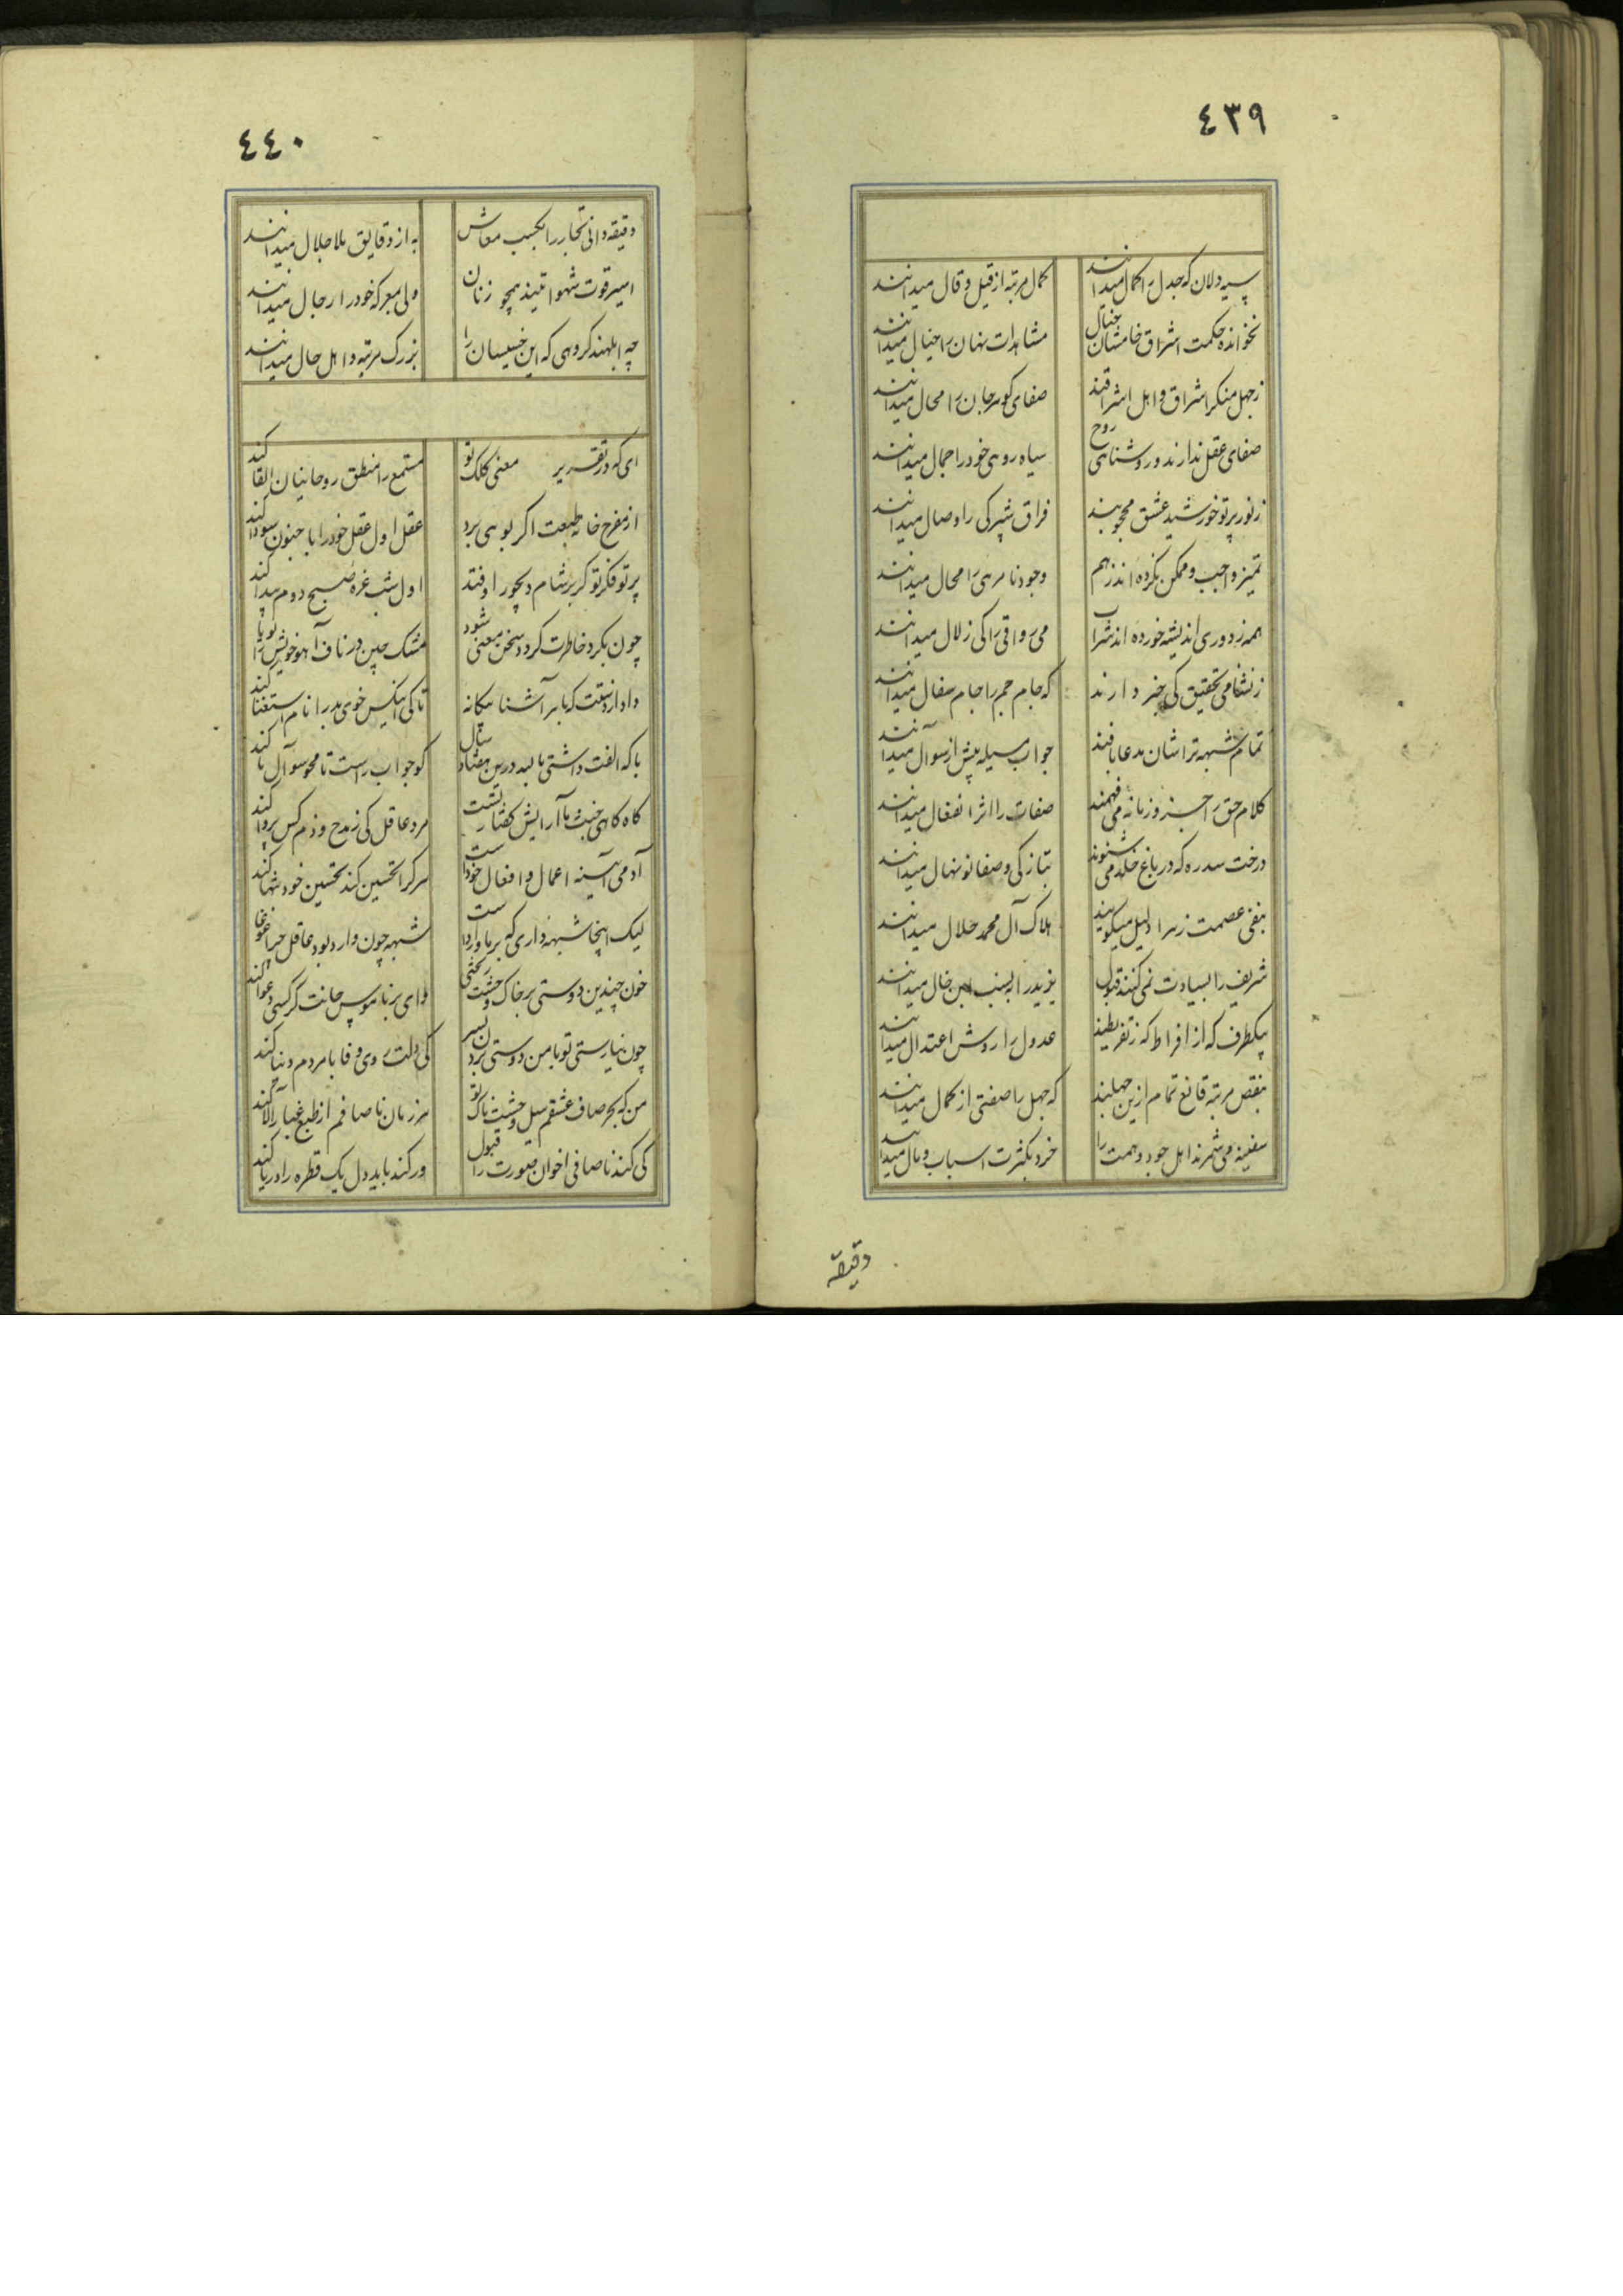 ٤٣٩
سیه دلان که جدل را کمال میدانند
کمال مرتبه از قیل و قال میدانند
نخوانده حکمت اشراق خامشان بخیال
مشاهدات نهان را خیال میدانند
ز جهل منکر اشراق و اهل اشراقند
صفای کوهر جان را محال میدانند
صفای عقل ندارند و روشنایی روح
سیاه رویی خود را جمال میدانند
ز نور پرتو خورشید عشق محجوبند
فراق شپرکی را وصال میدانند
تمیز واجب و ممکن نکرده اند ز هم
وجود نامرئی را محال میدانند
همه ز دوری اندیشه خورده اند شراب
می رواقی را کی زلال میدانند
ز نشا می تحقیق کی خبر دارند
که جام جم را جام سفال میدانند
تمام شبهه تراشان مدعا بافند
جواب مسیله پیش از سوآل میدانند
کلام حق را جز و زبانه می فهمند
صفات را اثر انفعال میدانند
درخت سدره که در باغ خلد می شنوند
بتازکی و صفا نونهال میدانند
بنفی عصمت زهرا دلیل میکویند
هلاک آل محمد حلال میدانند
شریف را بسیادت نمی کنند قبول
یزید را بنسب ابن خال میدانند
بیکطرف که از افراط که ز تفریطند
عدول را روش اعتدال میدانند
بنقص مرتبه قانع تمام ازین جهلند
که جهل را صفتی از کمال میدانند
سفینه می شمرند اهل جود و همت را
خرد بکثرت اسباب و مال میدانند
دقیقه
٤٤٠
دقیقه دانی تجار را بکسب معاش
به از دقایق ملا جلال میدانند
اسیر قوت شهواتیند همچو زنان
ولی بمعرکه خود را رجال میدانند
چه ابلهند کروهی که این خسیسان را
بزرک مرتبه و اهل حال میدانند
ای که در تقریر معنی کلک تو
مستمع را منطق روحانیان القا کند
از مفرح خانه طبعت اکر بویی برد
عقل اول عقل خود را با جنون سودا کند
پرتو فکر تو کر بر شام دیجور اوفتد
اول شب غره صبح دوم پیدا کند
چون بکرد خاطرت کردد سخن معنی شود
مشک چین در ناف آهو خویش را بویا کند
داد از دستت که با هر آشنا بیکانه
تا کی اینکس خوی بد را نام استغنا کند
با که الفت داشتی یا لبد درین هفتاد سال
کو جواب راست تا محو سوآل ما کند
کاه کاهی خبث ما آرایش کفتار تست
مرد عاقل کی ز مدح و ذم کس پروا کند
آدمی آیینه اعمال و افعال خودست
هر کرا تحسین کند تحسین خود تنها کند
لیک اینجا شبهه داری که بر ما واردست
شبهه چون وارد بود عاقل چرا غوغا کند
خون چندین دوستی بر خاک وحشت ریختی
وای بر ناموس جانت کر کسی دعوا کند
چون نیارستی تو با من دوستی بردن بسر
کی دلت روی وفا با مردم دنیا کند
من که بحر صاف عشقم سیل وحشت ناک تو
هر زمان ناصافم از طبع غبار آلا کند
کی کند ناصافی اخوان صورت را قبول
ور کند باید دل یک قطره را دریا کند